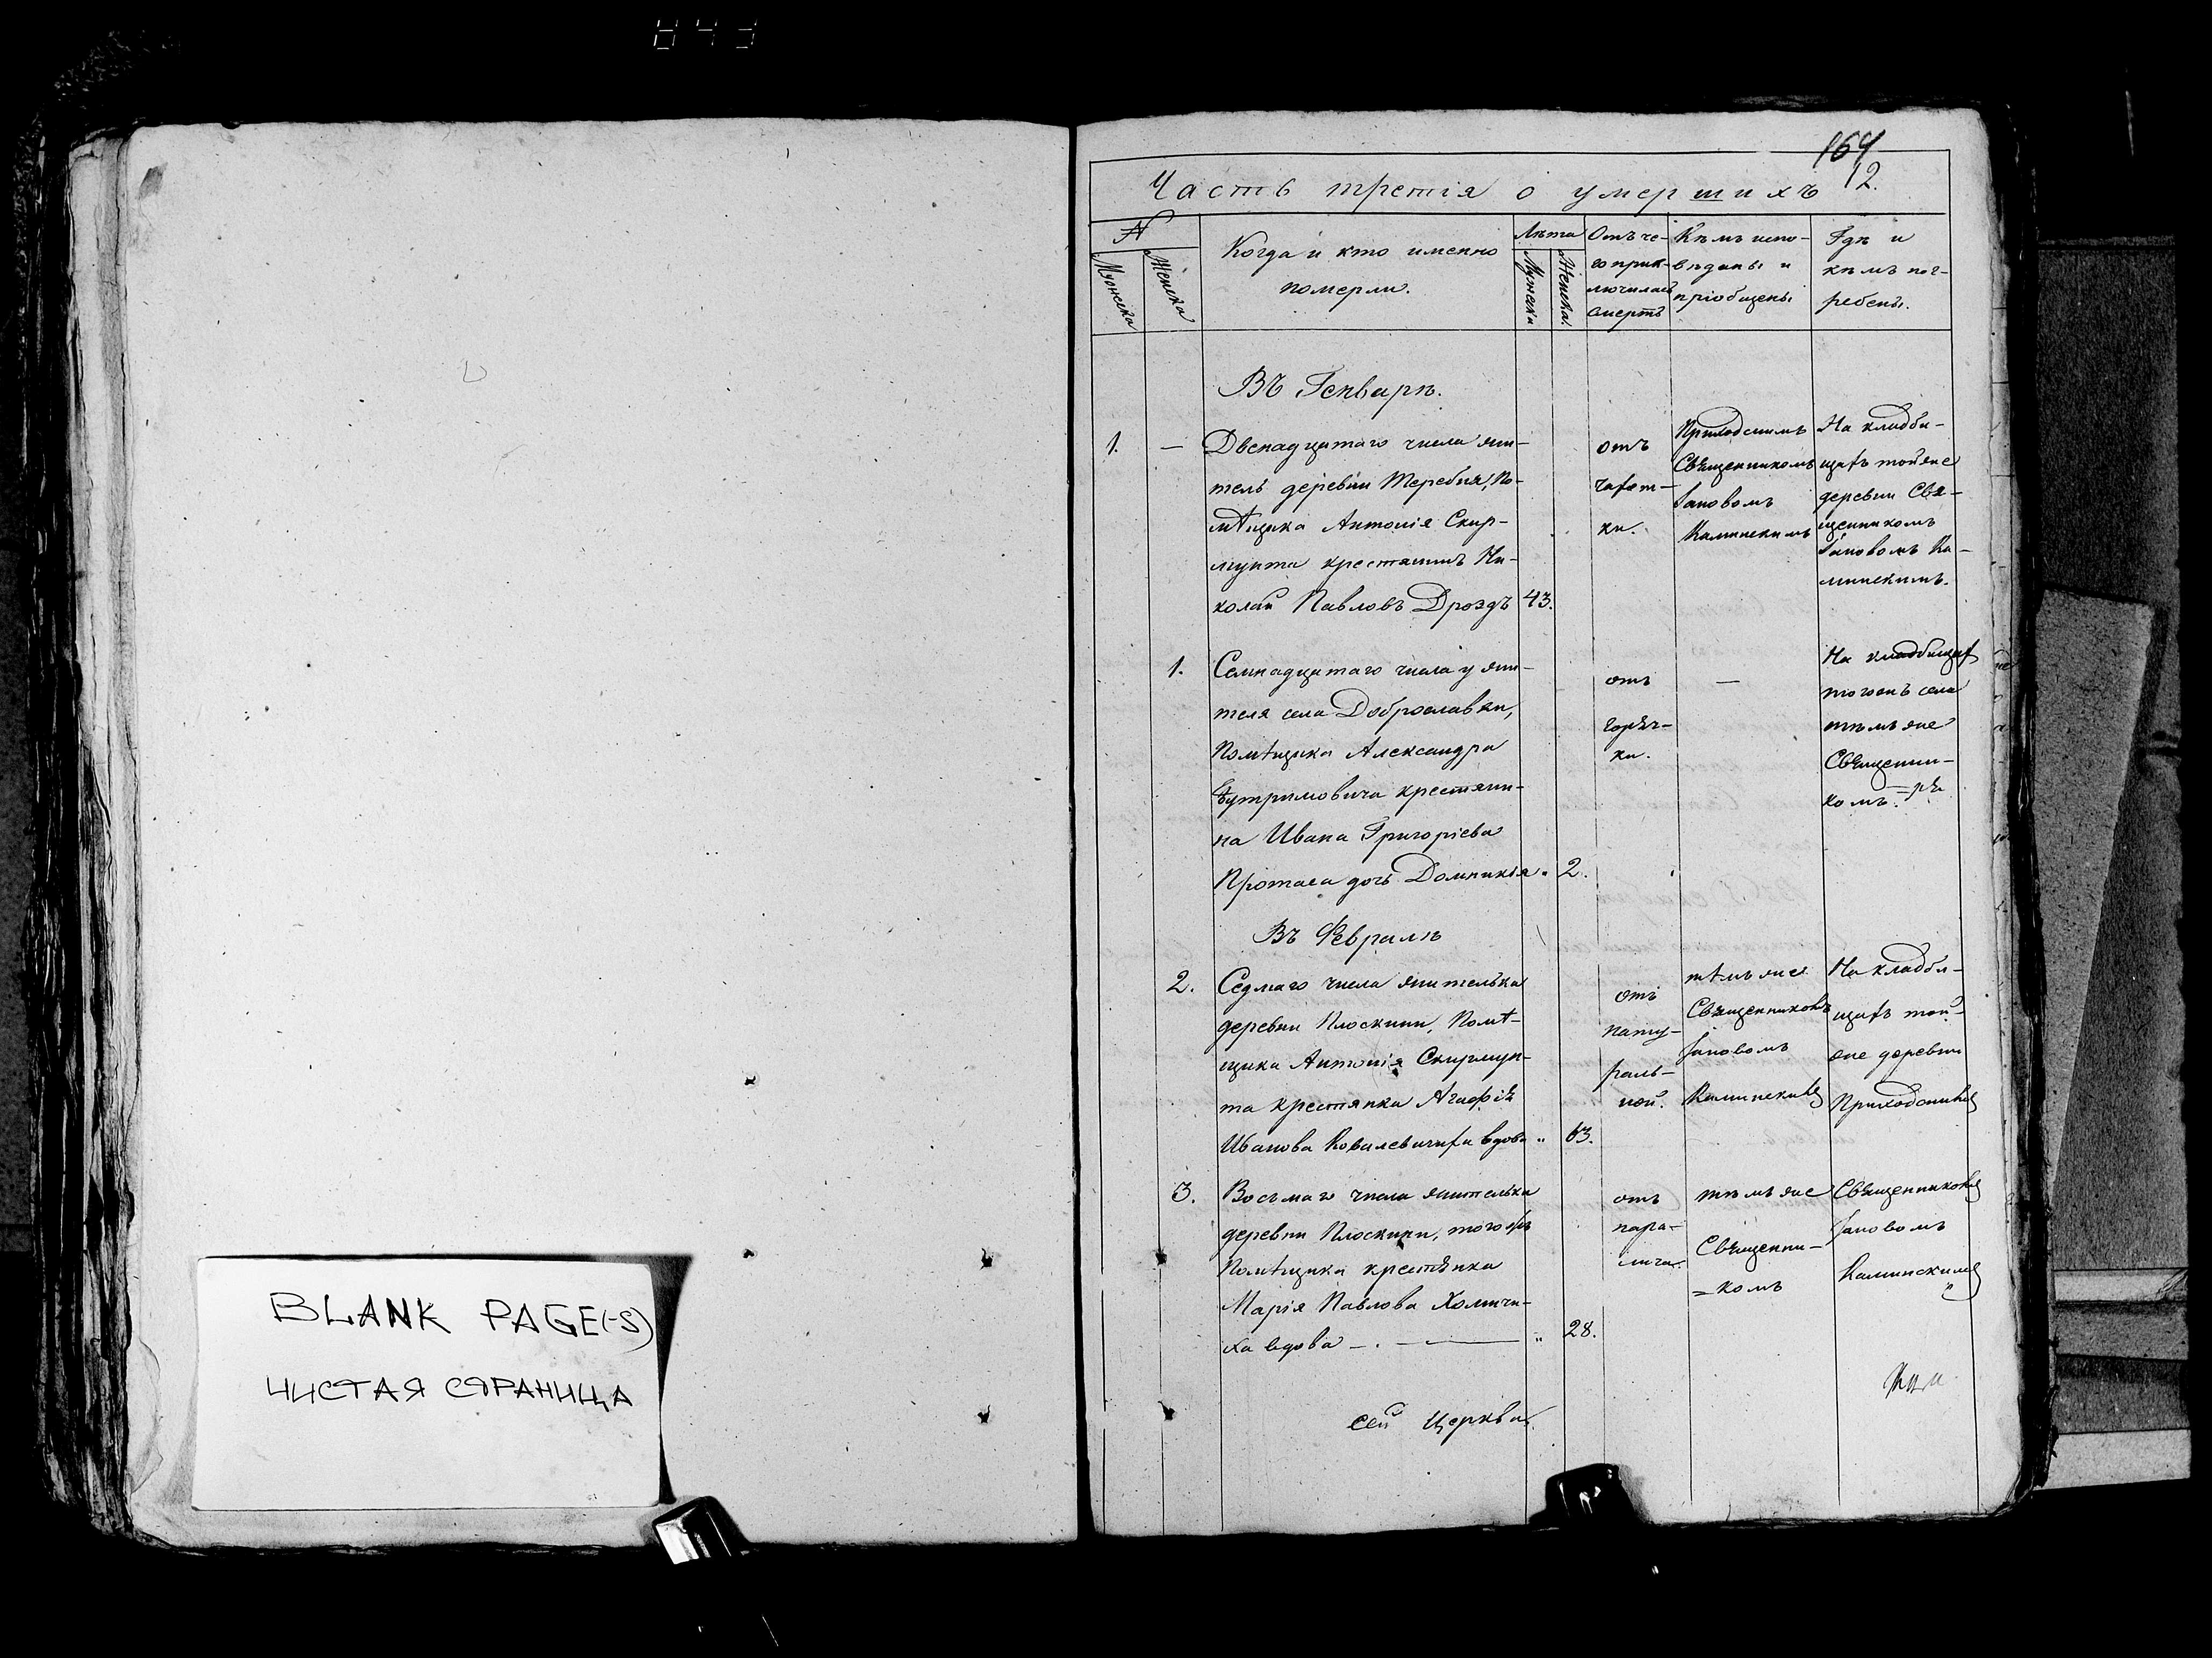 BLANK PAGE(-S)
ЧИСТАЯ СТРАНИЦА
164
12.
Часть третія о умершихъ
№
Мужеска
Женска
Когда и кто именно
померли.
Лѣта
Мужеска
Женска.
Отъ че-
го прик-
лючилась
смерть
Кѣмъ испо-
вѣданы и
пріобщены
Гдѣ и
кѣмъ пог-
ребены.
Въ Генварѣ.
1.
—
Двенадцатаго числа жи-
тель деревни Теребня, По-
мѣщика Антонія Скир-
мунта крестянинъ Ни-
колай Павловъ Дроздъ
43.
отъ
чахот-
ки.
Приходскимъ
Священникомъ
Іаковомъ
Каминскимъ
На кладби-
щахъ тойже
деревни Свя-
щенникомъ
Іаковомъ Ка-
минскимъ.
1.
Семнадцатаго числа у жи-
теля села Доброславки,
Помѣщика Александра
Бутримовича крестяни-
на Ивана Григоріева
Протаса дочь Домникія
2.
отъ
горяч-
ки.
—
На кладбищах
тогожъ села
тѣмъ же
Священни-
комъ.
Въ Февралѣ
2.
Седмаго числа жителька
деревни Плоскини, Помѣ-
щика Антонія Скирмун-
та крестянка Агафія
Иванова Ковалевичиха вдова
„
63.
отъ
нату-
раль-
ной.
тѣмъ же
Священникомъ
Іаковомъ
Каминскимъ
На кладби-
щахъ той-
же деревни
Приходскимъ
3.
Восьмаго числа жителька
деревни Плоскини, того жъ
Помѣщика крестянка
Марія Павлова Хомичи-
ха вдова —. —
„
28.
отъ
пара-
лича.
тѣмъ же
Священни-
=комъ
Священникомъ
Іаковомъ
Каминскимъ
сей Церкви